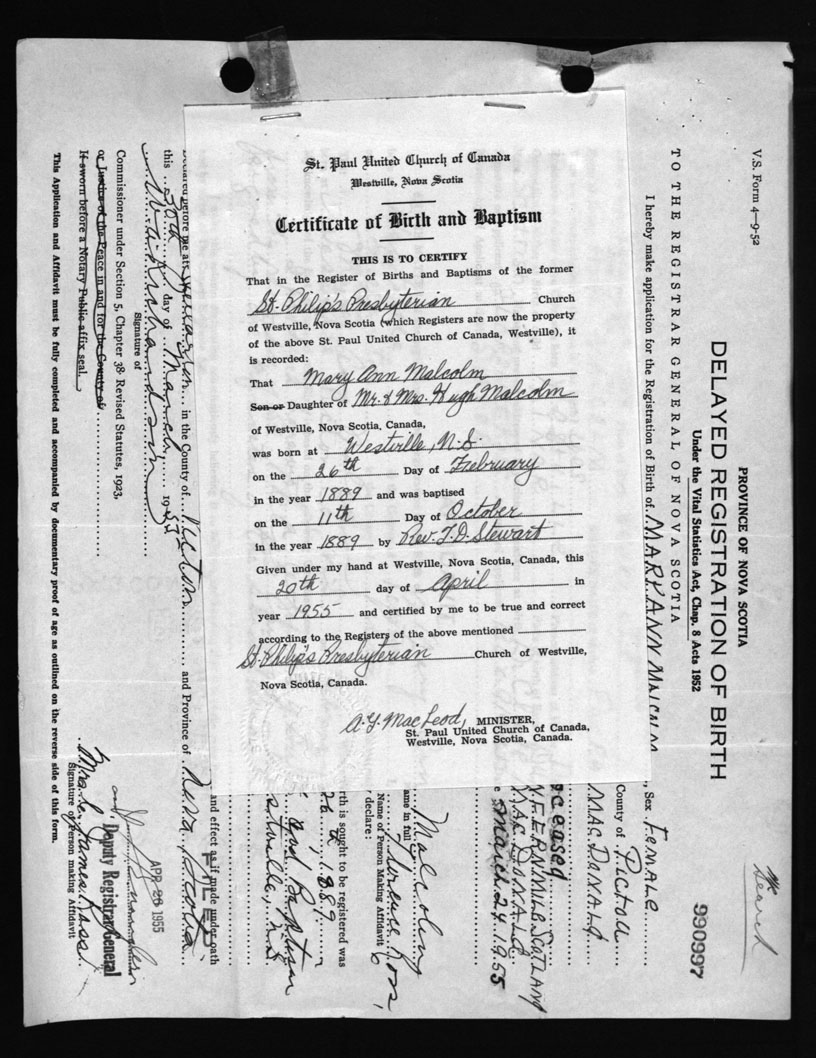 St. Paul United Church of Canada
Westville, Nova Scotia
Certificate of Birth and Baptism
THIS IS TO CERTIFY
That in the Register of Births and Baptisms of the former
St. Philip's Presbyterian Church
of Westville, Nova Scotia (which Registers are now the property
of the above St. Paul United Church of Canada, Westville), it
is recorded:
That Mary Ann Malcolm
Son or Daughter of Mr. & Mrs. Hugh Malcolm
of Westville, Nova Scotia, Canada,
was born at Westville, N.S.
on the 26th Day of February
in the year 1889 and was baptised
on the 11th Day of October
in the year 1889 by Rev. T. D. Stewart
Given under my hand at Westville, Nova Scotia, Canada, this
20th day of April in
year 1955 and certified by me to be true and correct
according to the Registers of the above mentioned
St. Philip's Presbyterian Church of Westville,
Nova Scotia, Canada.
A. G. MacLeod, MINISTER,
St. Paul United Church of Canada,
Westville, Nova Scotia, Canada.
V.S. Form 4—9-52
Search
990997
PROVINCE OF NOVA SCOTIA
DELAYED REGISTRATION OF BIRTH
Under the Vital Statistics Act, Chap. 8 Acts 1952
TO THE REGISTRAR GENERAL OF NOVA SCOTIA
I hereby make application for the Registration of Birth of MARY ANN MALCOLM, Sex FEMALE
County of PICTOU
MACDONALD
Deceased
SCOTLAND
MACDONALD
March 24, 1955
Malcolm
Name in full
Florence Ross,
Name of Person Making Affidavit
, declare:
rth is sought to be registered was
26th, 1889
and Baptism
Westville, N.S.
and effect as if made under oath
Declared before me at in the County of Pictou and Province of Nova Scotia
this 30th day of March 19 55
Signature of
Commissioner under Section 5, Chapter 38 Revised Statutes, 1923,
or Justice of the Peace in and for the County of
If sworn before a Notary Public affix seal.
FILED
APR 28 1955
Deputy Registrar General
Mrs. James Ross
Signature of Person making Affidavit
This Application and Affidavit must be fully completed and accompanied by documentary proof of age as outlined on the reverse side of this form.